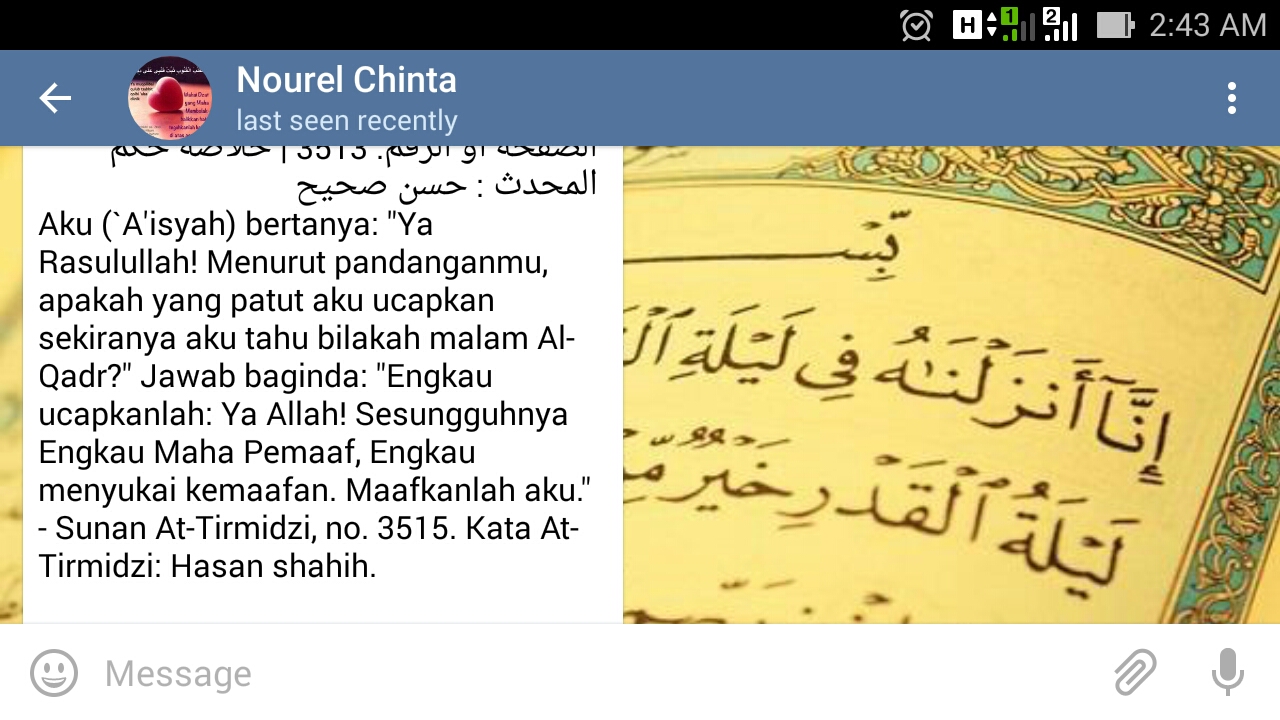 H 1 2 2:43 AM
Nourel Chinta
last seen recently
الصفحة أو الرقم: 3513 | خلاصة حكم
المحدث : حسن صحيح
Aku (`A'isyah) bertanya: "Ya
Rasulullah! Menurut pandanganmu,
apakah yang patut aku ucapkan
sekiranya aku tahu bilakah malam Al-
Qadr?" Jawab baginda: "Engkau
ucapkanlah: Ya Allah! Sesungguhnya
Engkau Maha Pemaaf, Engkau
menyukai kemaafan. Maafkanlah aku."
- Sunan At-Tirmidzi, no. 3515. Kata At-
Tirmidzi: Hasan shahih.
بِّسْ
إِنَّآ أَنزَلْنَٰهُ فِي لَيْلَةِ
لَيْلَةُ ٱلْقَدْرِ خَيْرٌ
Message